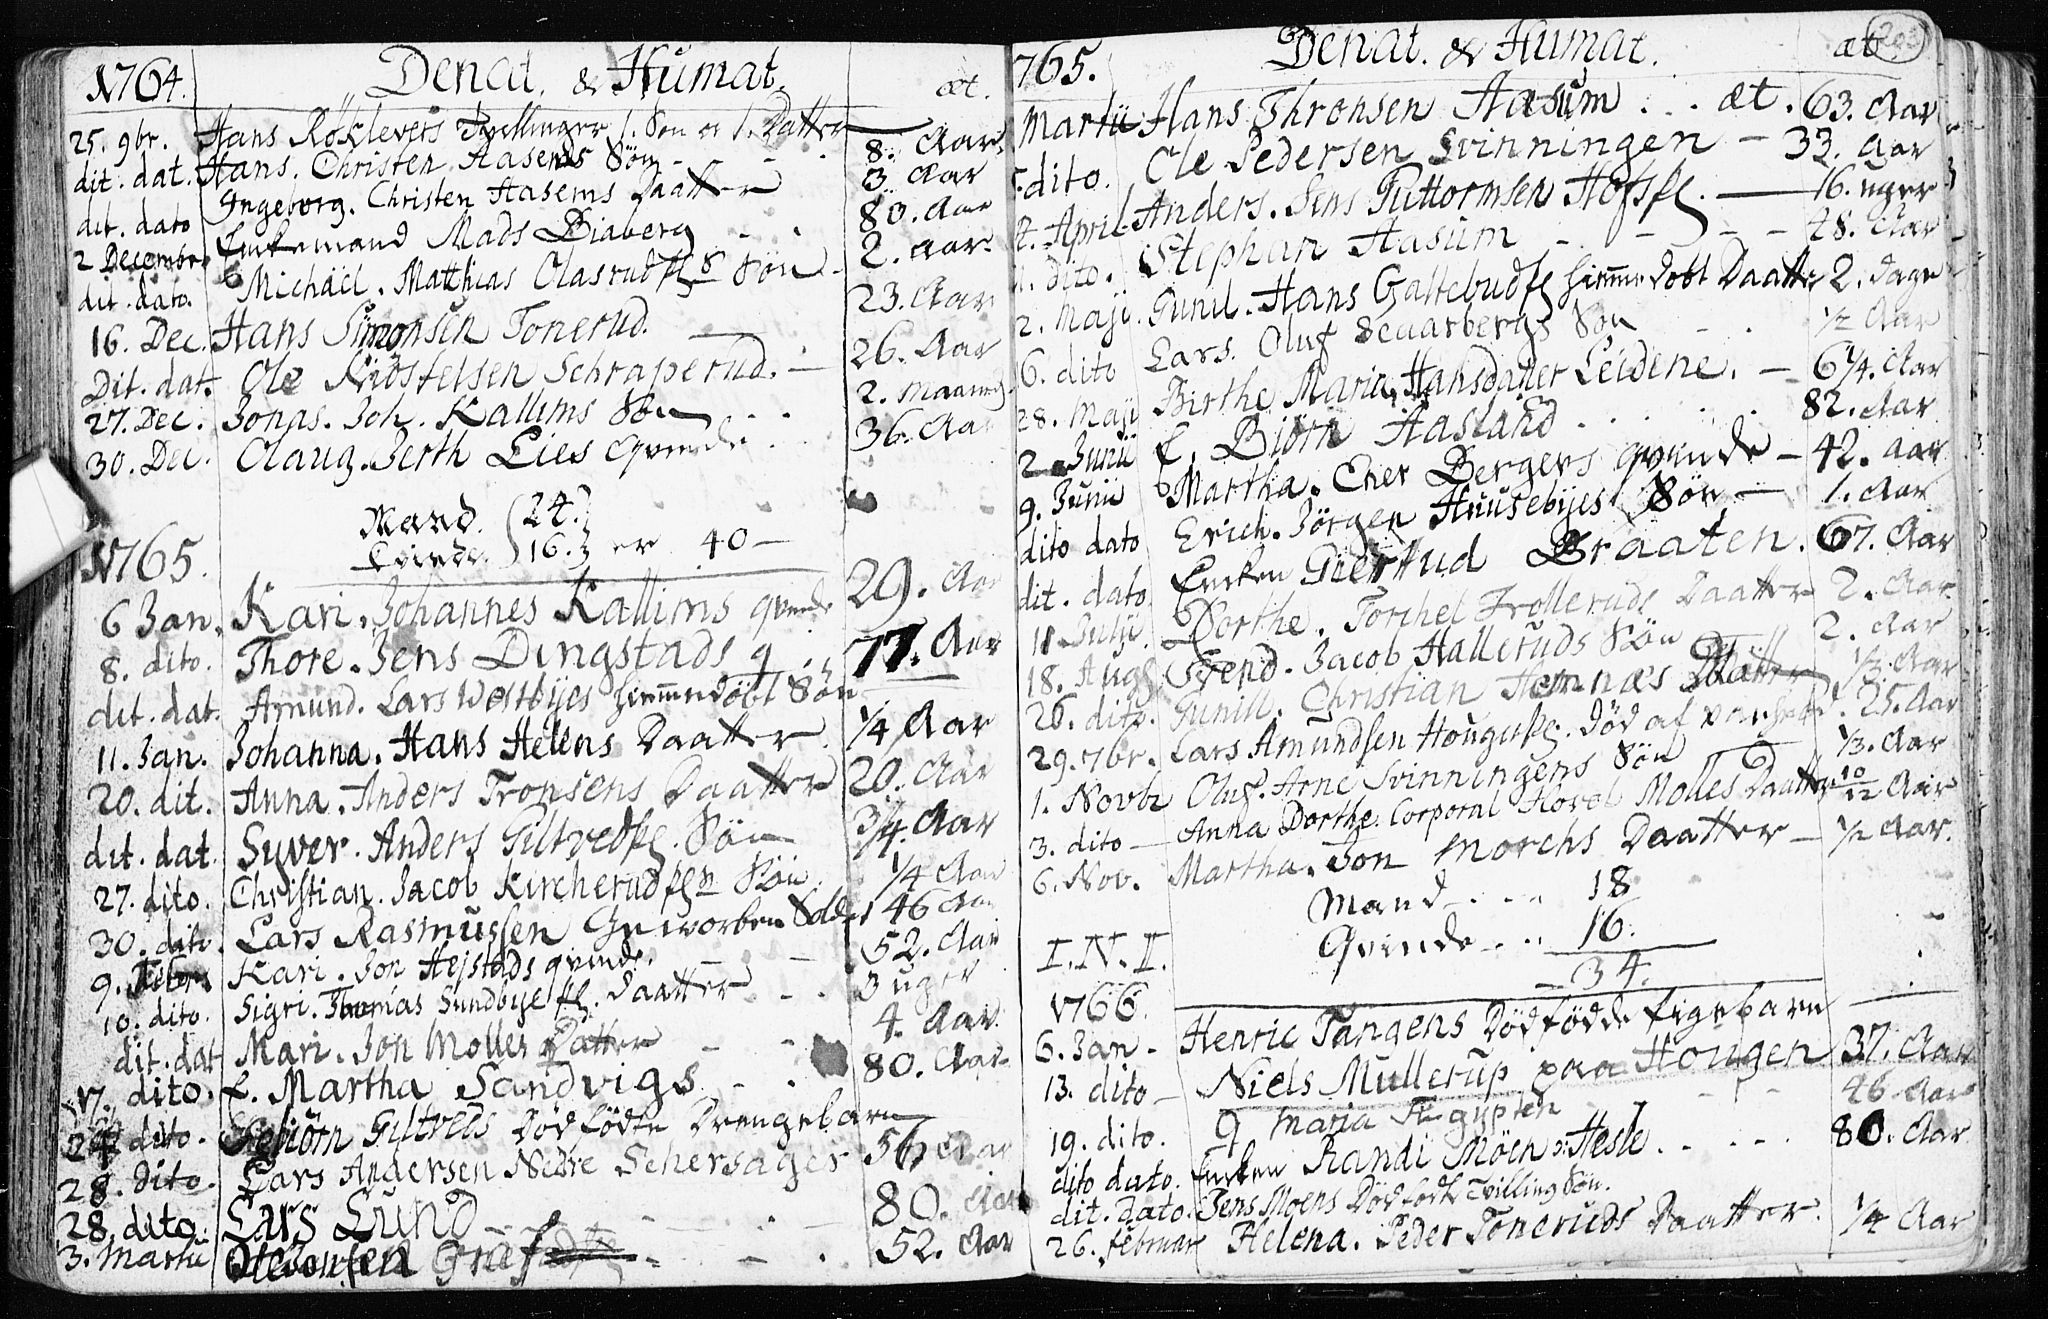 1764. Denat. & Humat. æt.
25. 9br. Hans Røklevets Tvellinger 1. Søn oc 1. Datter
dit. dat. Hans. Christen Aasends Søn - - - 8. Aar
dit. dato Ingeborg. Christen Aasems Daatter 3 Aar
2 Decembr Enkemand Mads Biaberg - - - 80. Aar
dit. dato. Michäel. Matthias Olasrudss Søn - 2. Aar
16. Dec. Hans Simonsen Tonerud. 23. Aar
Dit. dat. Ole Kiöstelsen Schraperud. 26. Aar
27. Dec. Jonas. Joh. Kallums Søn 2. Maaned
30. Dec. Olaug. Berth Lies Qvinde 36. Aar
Mand. 24.
Qvinde. 16. er 40
1765.
6 Jan. Kari. Johannes Kallums qvinde 29. Aar
8. dito. Thore. Jens Dingstads q 77. Aar
dit. dat. Amund. Lars Westbyes hiemmedöbt Søn
11. Jan. Johanna. Hans Helens Daatter. 1/4 Aar
20. dit. Anna. Anders Tronsens Daatter 20. Aar
dit. dat. Syver. Anders Giltvedss. Søn 3/4. Aar
27. dito. Christian. Jacob Kircherudss Søn. 1/4 Aar
30. dito. Lars Rasmussen Gevorben Soldat 46 Aar
9. Febr. Kari. Jon Hejstads qvinde. 52. Aar
10. dito. Sigri. Thomas Sundbye ss. Daatter 3 uger
dit. dat Mari. Jon Molles Datter 4. Aar
17. dito. E. Martha Sandvigs - - 80. Aar
24 dito. Giltveds Dödfödte Drengebarn
28. dito. Lars Andersen Nedre Schersager 56 Aar
28. dito. Lars Lund 80. Aar
3. Martii Ole 52. Aar
1765. Denat. & Humat. æt 203
Martii Hans Thronsen Aasum . . . æt. 63. Aar
dito. Ole Pedersen Svinningen - 33. Aar
April Anders. Jens Guttormsen Hofss. 16. uger
dito. Stephan Aasum - - - 48. Aar
2. Maji. Gunil. Hans Galtebudss hiemmedöbt Daatter 2. dage
6. dito Lars. Oluf Scaarbergs Søn - . 1/2 Aar
28. Maji Birthe Maria Hansdatter Leidene. - 6 1/4. Aar
2 Junii E. Biörn Aasland . . . . 82. Aar
9. Junii Martha. Ener Bergers qvinde - 42. aar
dito dato Erich. Jörgen Huusebyes Søn - 1. Aar
dit. dato. Encken Giertrud Braaten. 67. Aar
11 Julii Dorthe. Torchel Trolleruds Daatter 2. Aar
18. Aug. Svend. Jacob Halleruds Søn 2. Aar
26. dito. Gunill. Christian Hemnæs Datter 1/2 Aar
29. 7br. Lars Amundsen Hougerss. död af 25. Aar
1. Novbr Oluf. Arne Svinningens Søn 1/3. Aar
3. dito - Anna Dorthe. Corporal Hovel Molles Daatter 10/12 Aar
6. Nov. Martha. Jon Morchs Daatter - 1/2 Aar.
Mand . . . 18
Qvinde . . 16.
34.
I. N. I.
1766.
6. Jan - Henric Tangens Dödfödde Pigebarn
13. dito - Niels Mullerup paa Hougen 37. Aar
19. dito. Q Maria Ægypten - - - 46 Aar
dito dato. Encken Randi Möen Hesle . . . 80. Aar
dit. dato. Jens Moens Dödfödt Tvilling Søn.
26. februar Helena. Peder Toneruds Daatter. 1/4 Aar